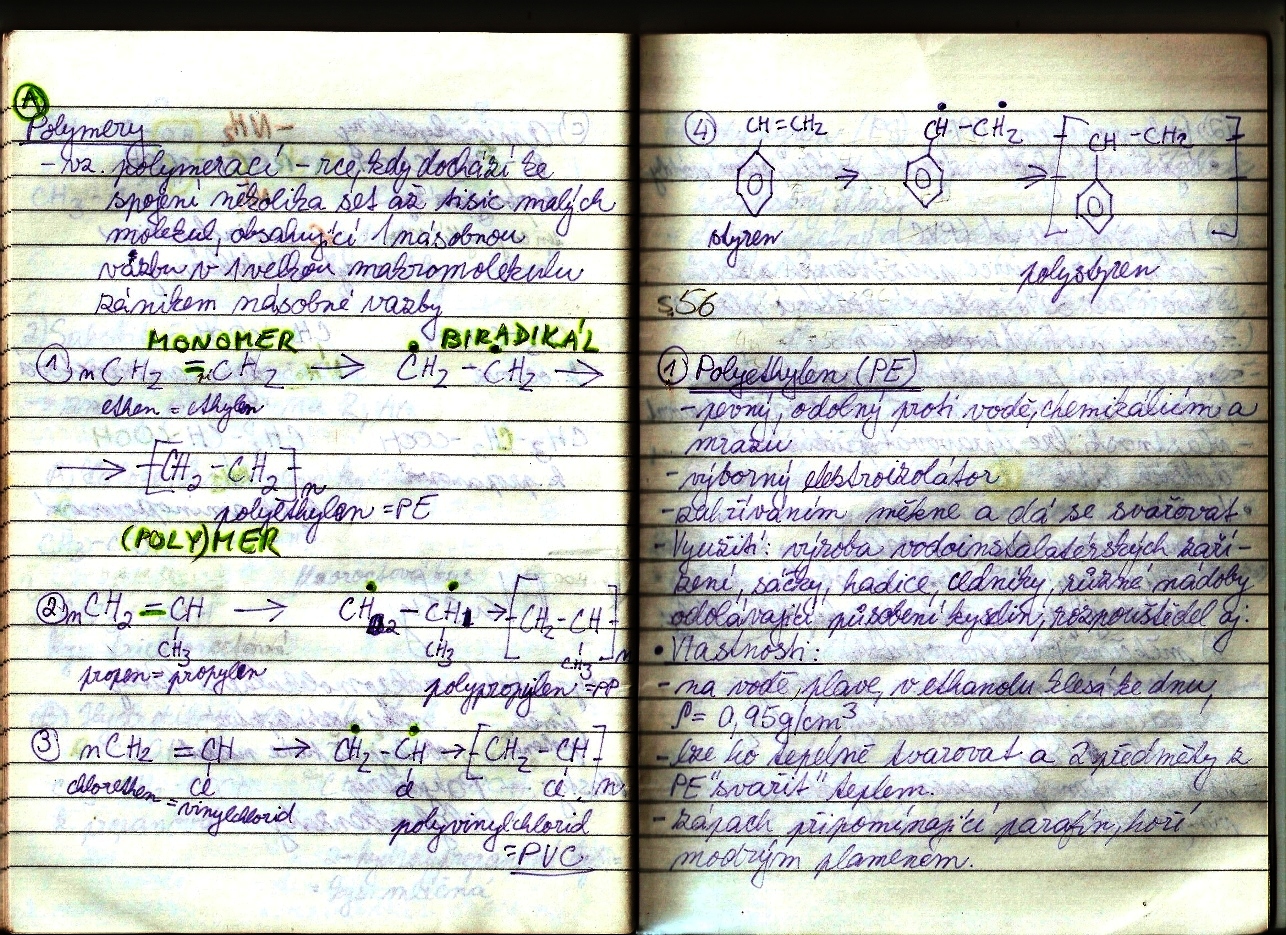 A
Polymery
- vz. polymerací - rce, kdy dochází ke
spojení několika set až tisíc malých
molekul, obsahující 1 násobnou
vazbu v 1 velkou makromolekulu
zánikem násobné vazby
MONOMER BIRADIKÁL
① nCH2 = CH2 → CH2 - CH2 →
ethen = ethylen
→ [CH2 - CH2]n
polyethylen = PE
(POLY)MER
② nCH2 = CH → CH2 - CH → [CH2 - CH]n
CH3 CH3 CH3
propen = propylen polypropylen = PP
③ nCH2 = CH → CH2 - CH → [CH2 - CH]n
Cl Cl Cl
chlorethen = vinylchlorid
polyvinylchlorid
= PVC
④ CH=CH2 → CH - CH2 → [CH - CH2]
styren
polystyren
s.56
① Polyethylen (PE)
- pevný, odolný proti vodě, chemikáliím a
mrazu
- výborný elektroizolátor
- zahříváním měkne a dá se svařovat
- Využití: výroba vodoinstalatérských zaří-
zení, sáčky, hadice, cedníky, různé nádoby
odolávající působení kyselin, rozpouštědel aj.
• Vlastnosti:
- na vodě plave, v ethanolu klesá ke dnu,
ρ = 0,95g/cm3
- lze ho tepelně tvarovat a 2 předměty z
PE "svařit" teplem.
- zápach připomínající parafín, hoří
modrým plamenem.